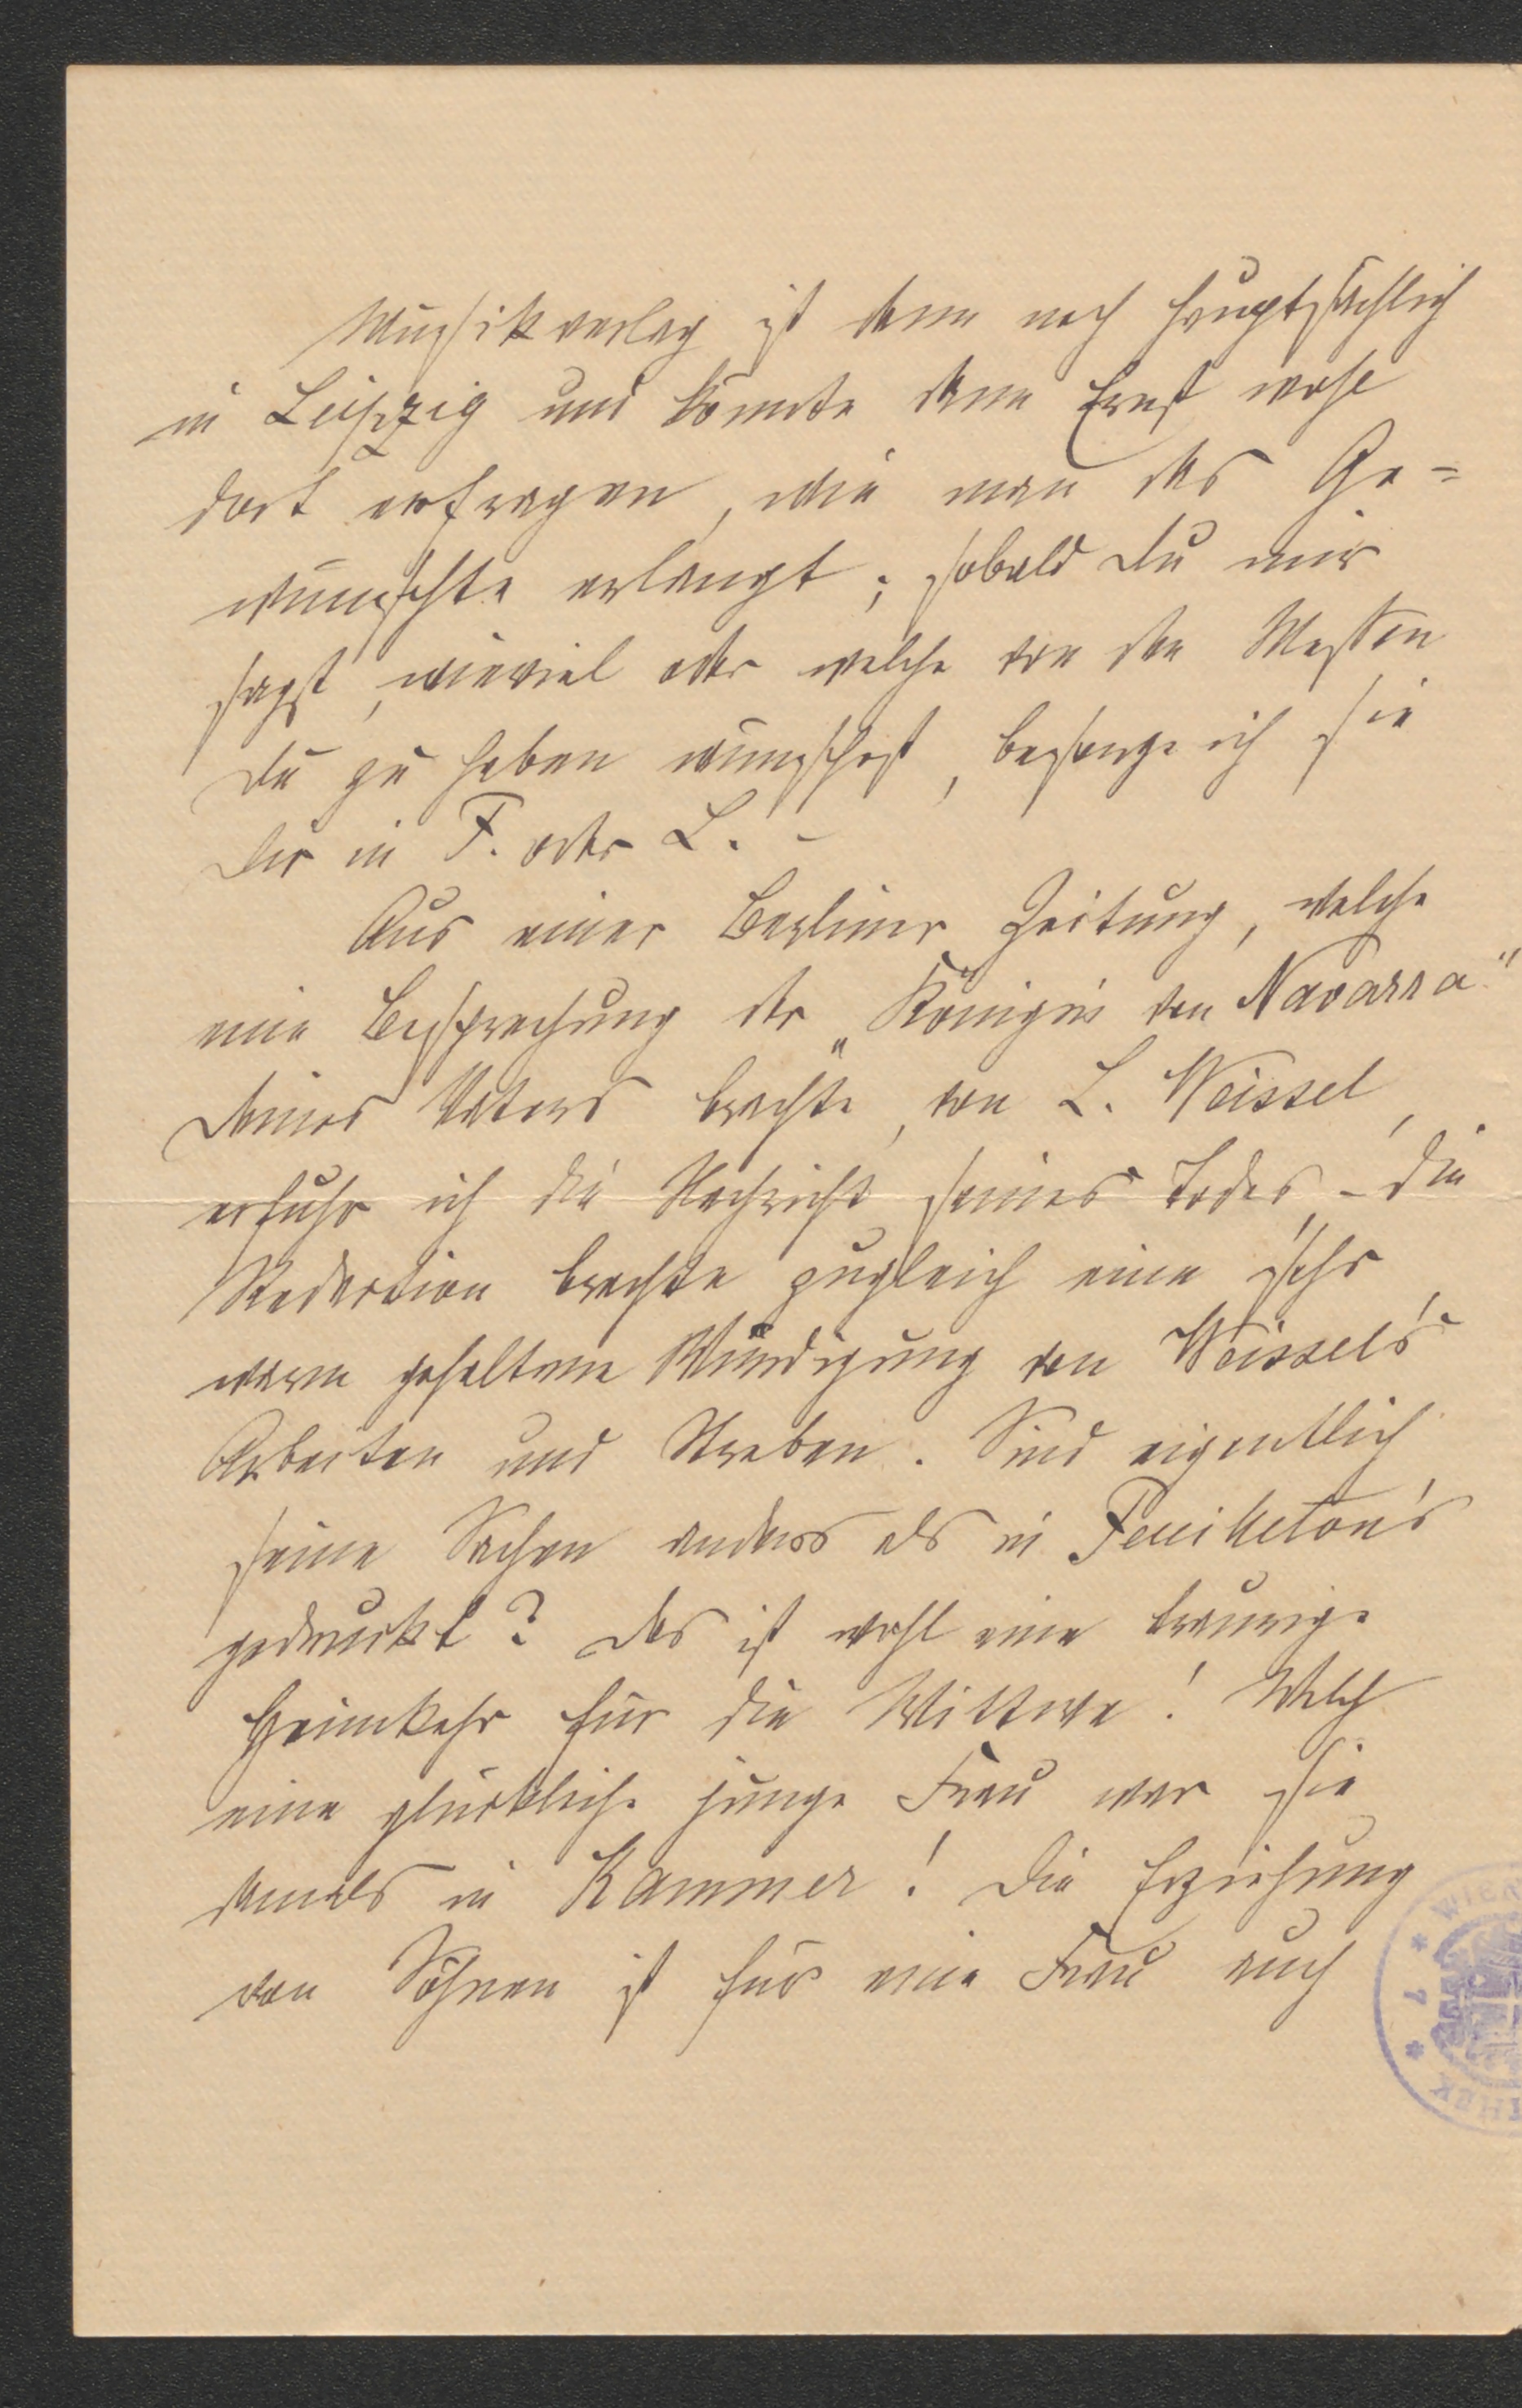 Musikverlag ist denn noch hauptsächlich
in Leipzig und könnte denn Ernst wohl
dort erfragen, wie man das Ge=
wünschte erlangt; sobald Du mir
sagst, wieviel oder welche von den Messen
Du zu haben wünschest, besorge ich sie
Dir in F. oder L. –
Aus einer Berliner Zeitung, welche
eine Besprechung der „Königin von Navarra"
Deines Vaters brachte, von L. Weissel,
erfuhr ich die Nachricht seines Todes – die
Redaction brachte zugleich eine sehr
warm gehaltene Würdigung von Weissel's
Arbeiten und Streben. Sind eigentlich
seine Sachen anders als in Feuilleton's
gedruckt? Das ist wohl eine traurige
Heimkehr für die Wittwe! Welch
eine glückliche junge Frau war sie
damals in Kammer! Die Erziehung
von Söhnen ist für eine Frau auch
WIEN
* 7 *